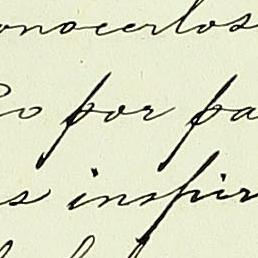 onocerlos
o por pa
s inspir